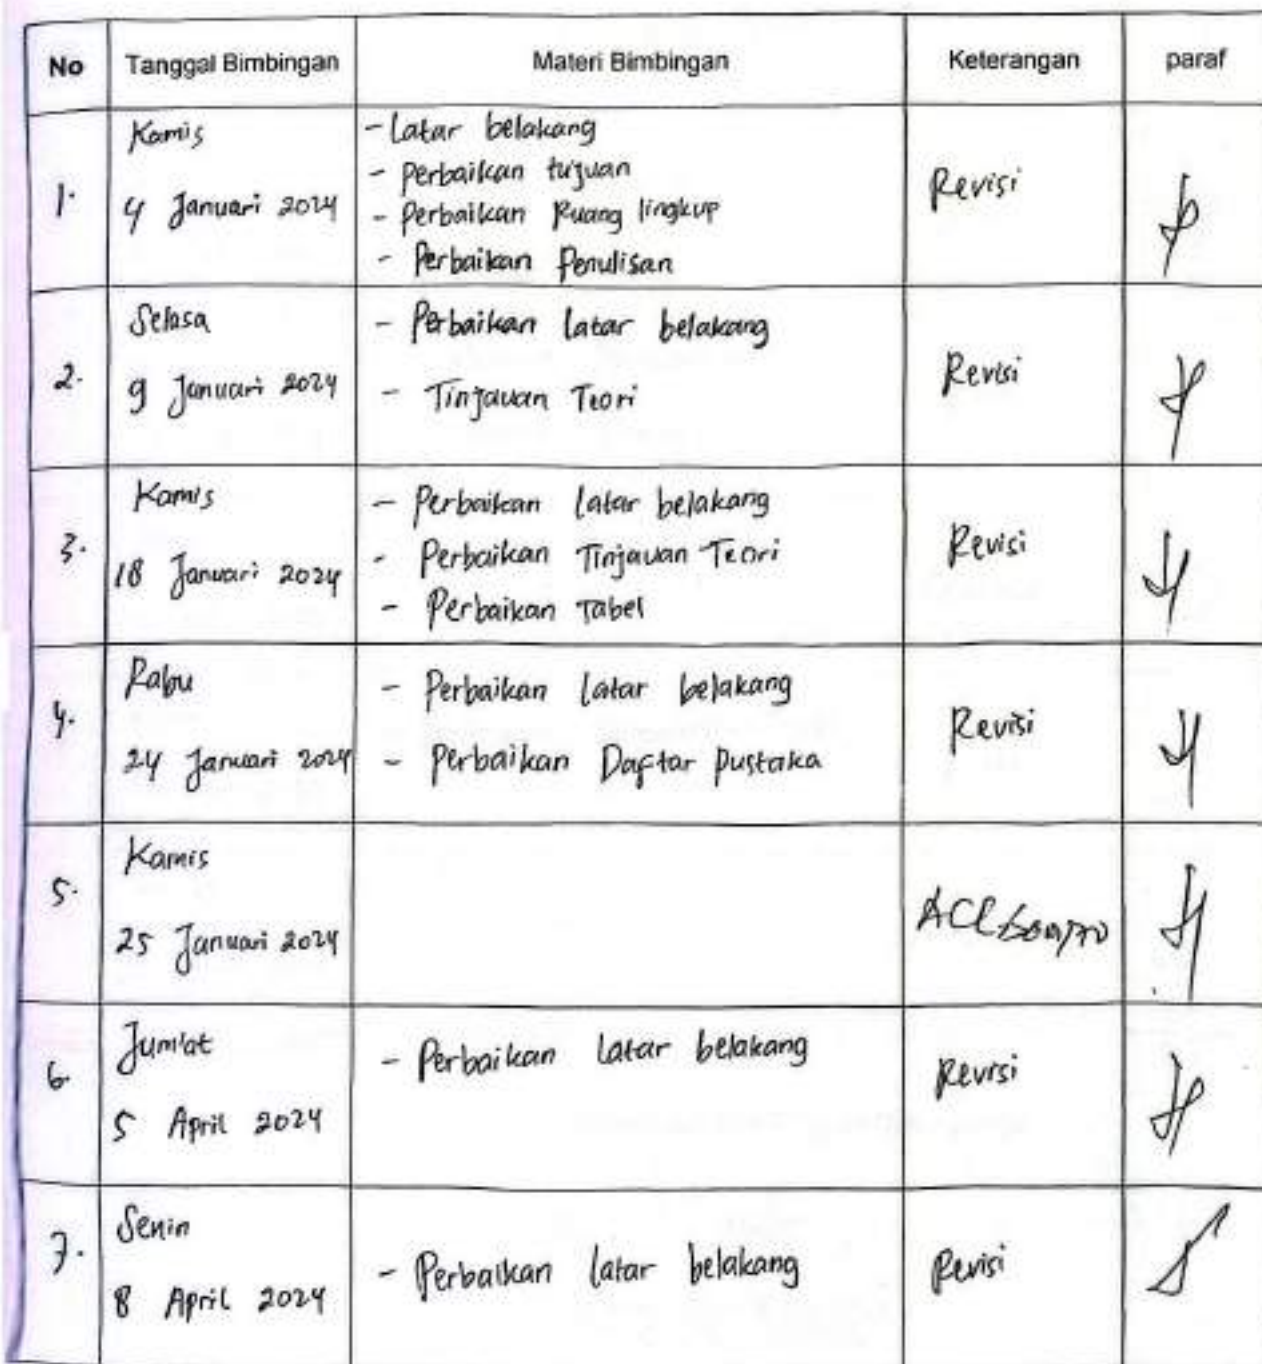 No Tanggal Bimbingan Materi Bimbingan Keterangan paraf
1. Kamis
4 Januari 2024
- Latar belakang
- Perbaikan tujuan
- Perbaikan Ruang lingkup
- Perbaikan Penulisan
Revisi
2. Selasa
9 Januari 2024
- Perbaikan latar belakang
- Tinjauan Teori
Revisi
3. Kamis
18 Januari 2024
- Perbaikan latar belakang
- Perbaikan Tinjauan Teori
- Perbaikan Tabel
Revisi
4. Rabu
24 Januari 2024
- Perbaikan latar belakang
- Perbaikan Daftar Pustaka
Revisi
5. Kamis
25 Januari 2024
ACC
6. Jum'at
5 April 2024
- Perbaikan latar belakang
Revisi
7. Senin
8 April 2024
- Perbaikan latar belakang
Revisi